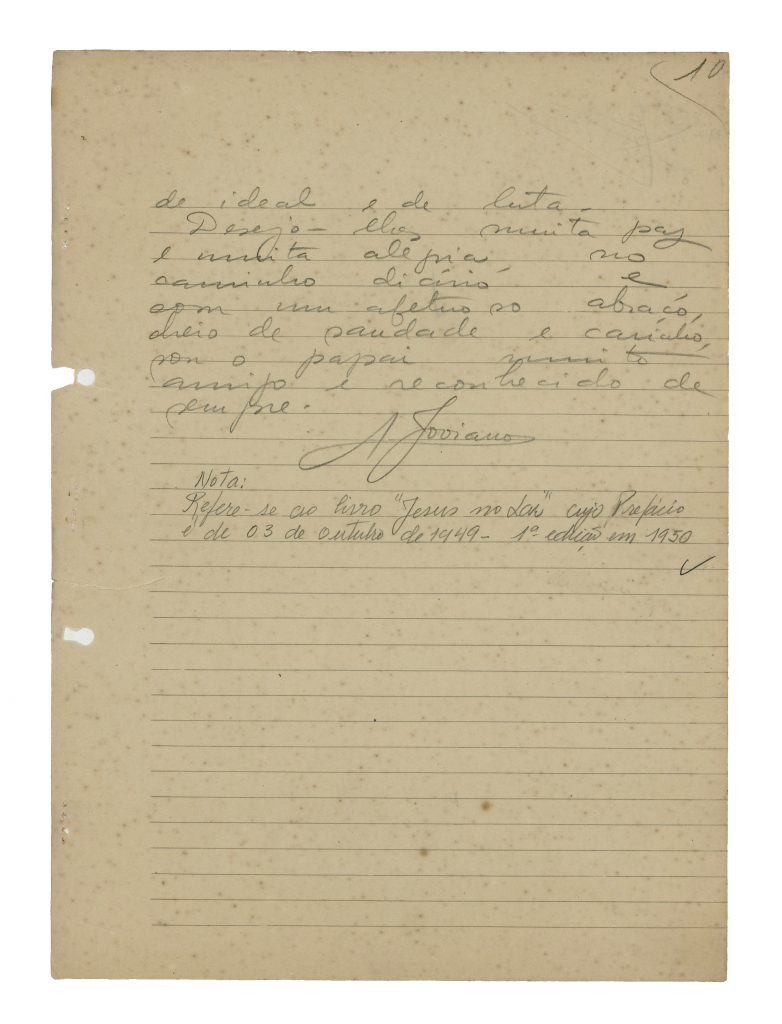 10
de ideal e de luta.
Desejo-lhes muita paz
e muita alegria no
caminho diário e
com um afetuoso abraço,
cheio de saudade e carinho,
sou o papai muito
amigo e reconhecido de
sempre.
A Joviano
Nota:
Refere-se ao livro "Jesus no Lar" cujo Prefácio
é de 03 de outubro de 1949 - 1ª edição em 1950